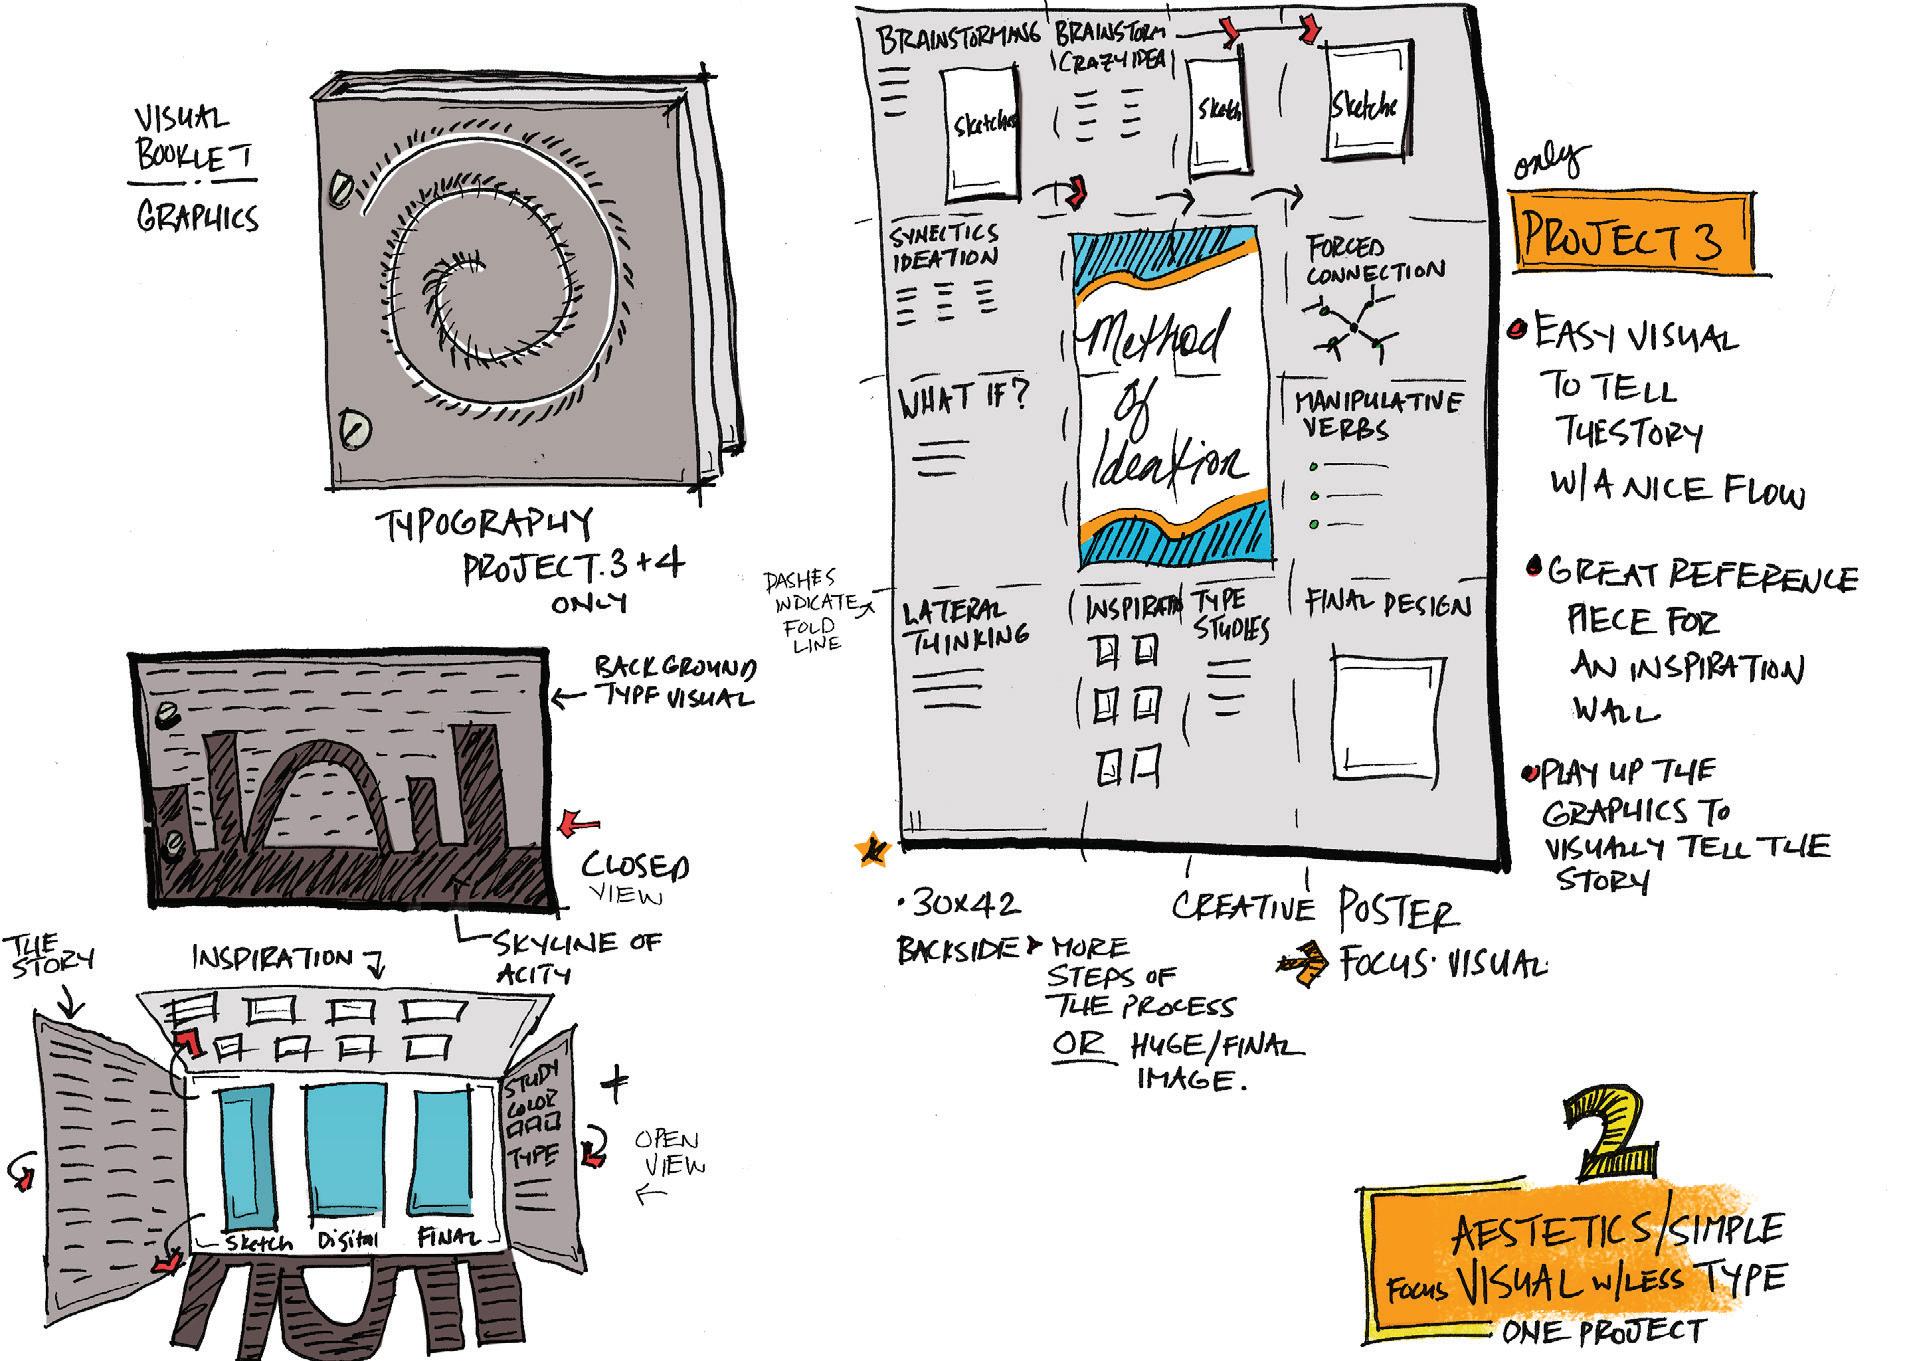 VISUAL
BOOKLET
GRAPHICS
TYPOGRAPHY
PROJECT.3+4
ONLY
BACKGROUND
TYPE VISUAL
CLOSED
VIEW
SKYLINE OF
ACITY
THE
STORY
INSPIRATION
STUDY
COLOR
TYPE
Sketch
Digital
FINAL
OPEN
VIEW
BRAINSTORMING
Sketches
BRAINSTORM
CRAZY IDEA
Sketch
Sketche
SYNECTICS
IDEATION
Method
Of
Ideation
FORCED
CONNECTION
WHAT IF?
MANIPULATIVE
VERBS
DASHES
INDICATE
FOLD
LINE
LATERAL
THINKING
INSPIRATN
TYPE
STUDIES
FINAL DESIGN
only
PROJECT 3
EASY VISUAL
TO TELL
THESTORY
W/A NICE FLOW
GREAT REFERENCE
PIECE FOR
AN INSPIRATION
WALL
PLAY UP THE
GRAPHICS TO
VISUALLY TELL THE
STORY
• 30x42
BACKSIDE
MORE
STEPS OF
THE PROCESS
OR HUGE/FINAL
IMAGE.
CREATIVE POSTER
FOCUS· VISUAL
2
AESTETICS/SIMPLE
FOCUS VISUAL W/LESS TYPE
ONE PROJECT